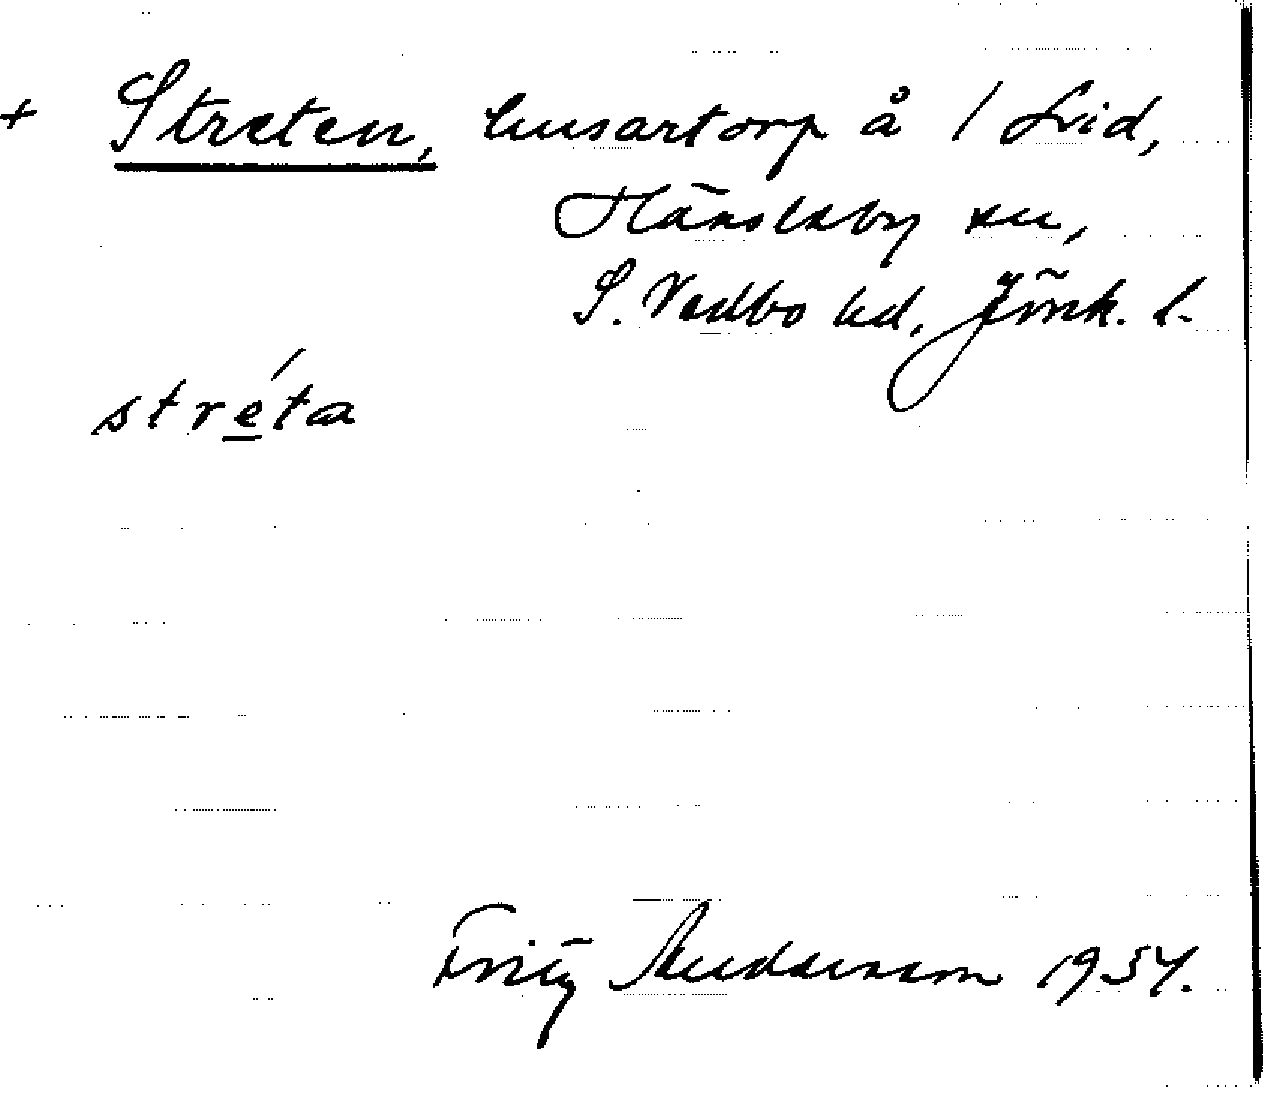 + Streten, husartorp å / Lid,
Hässleby sn,
S. Vedbo hd, Jönk. l.
stréta
Fritz Andersson 1954.